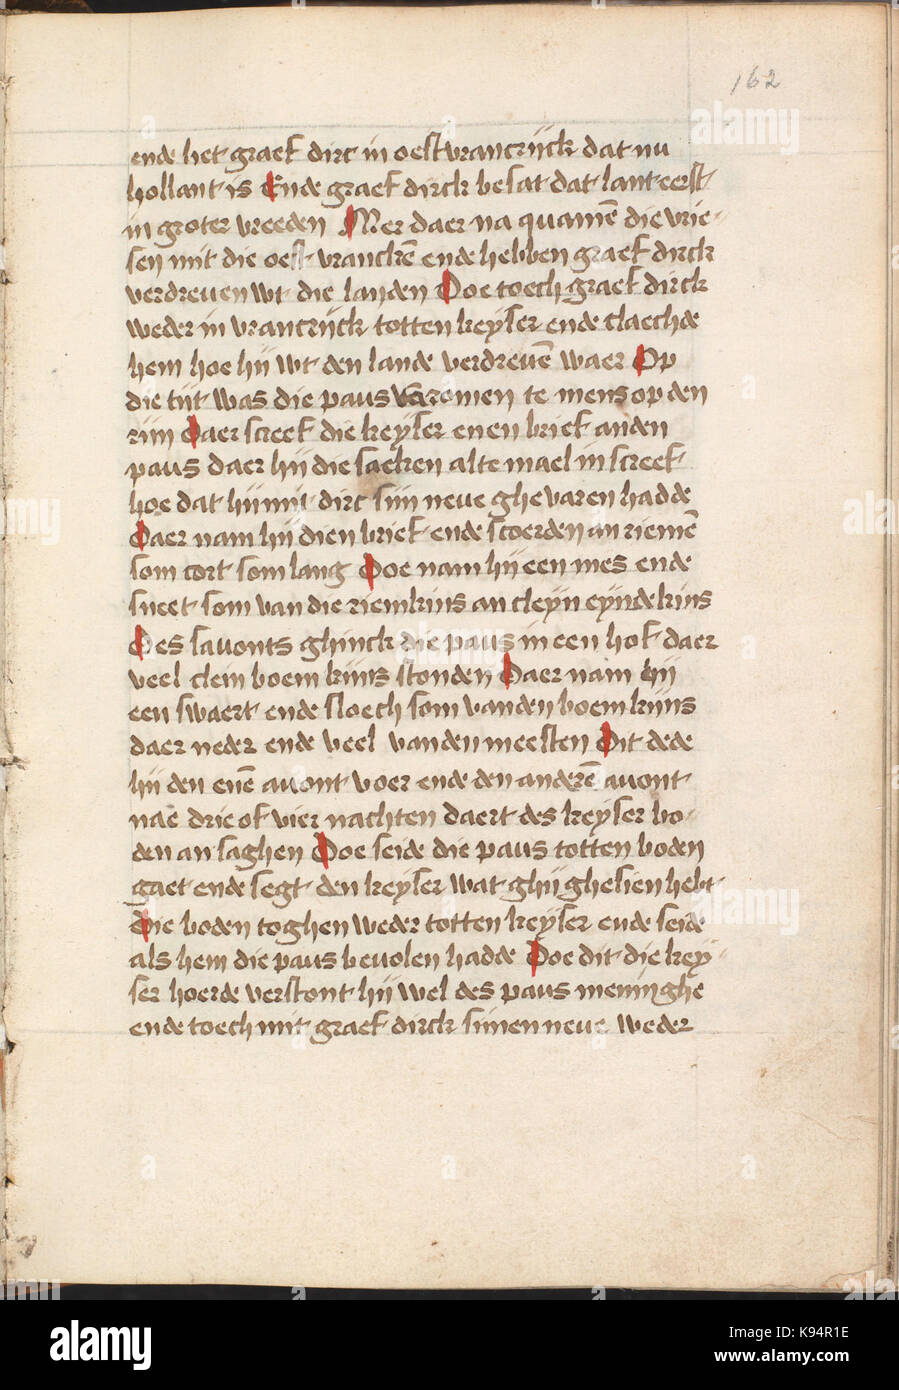 162
ende het graef dirc in oestvrancrijck dat nu
hollant is Ende graef dirck besat dat lant eerst
in groter vreeden Mer daer na quamē die vrie-
sen mit die oest vranckē ende hebben graef dirck
verdreven wt die landen Doe toech graef dirck
weder in vrancrijck totten keyser ende claechde
hem hoe hij wt den lande verdrevē waer Op
die tijt was die paus van romen te mens op den
rijn Daer screef die keyser enen brief an den
paus daer hij die saeken alte mael in screef
hoe dat hij mit dirc sijn neve ghevaren hadde
Daer nam hij dien brief ende scoerden an riemē
som cort som lang Doe nam hij een mes ende
sneet som van die riemkins an cleyn eyndekins
Des savonts ghinck die paus in een hof daer
veel clein boemkijns stonden Daer nam hij
een swaert ende sloech som vanden boemkijns
daer neder ende veel vanden meesten Dit dede
hij den enē avont voer ende den anderē avont
nae drie of vier nachten daert des keyser bo-
den an saghen Doe seide die paus totten boden
gaet ende segt den keyser wat ghij ghesien hebt
Die boden toghen weder totten keyser ende seide
als hem die paus bevolen hadde Doe dit die key-
ser hoerde verstont hij wel des paus meninghe
ende toech mit graef dirck sijnen neve weder
alamy
K94R1E
www.alamy.com